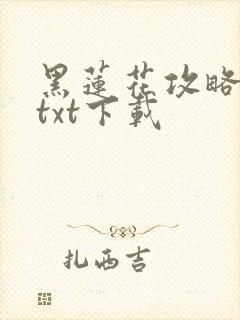 黑蓮花攻略
txt下載
扎西吉